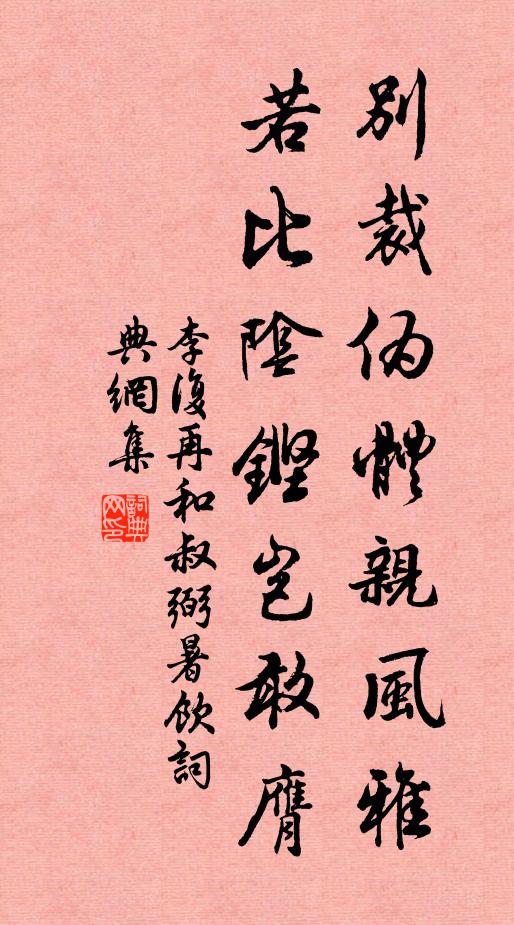 別裁偽體親風雅
若比陰鏗豈敢膺
李復再和叔弼暑飲詞
典網集
詞典網印